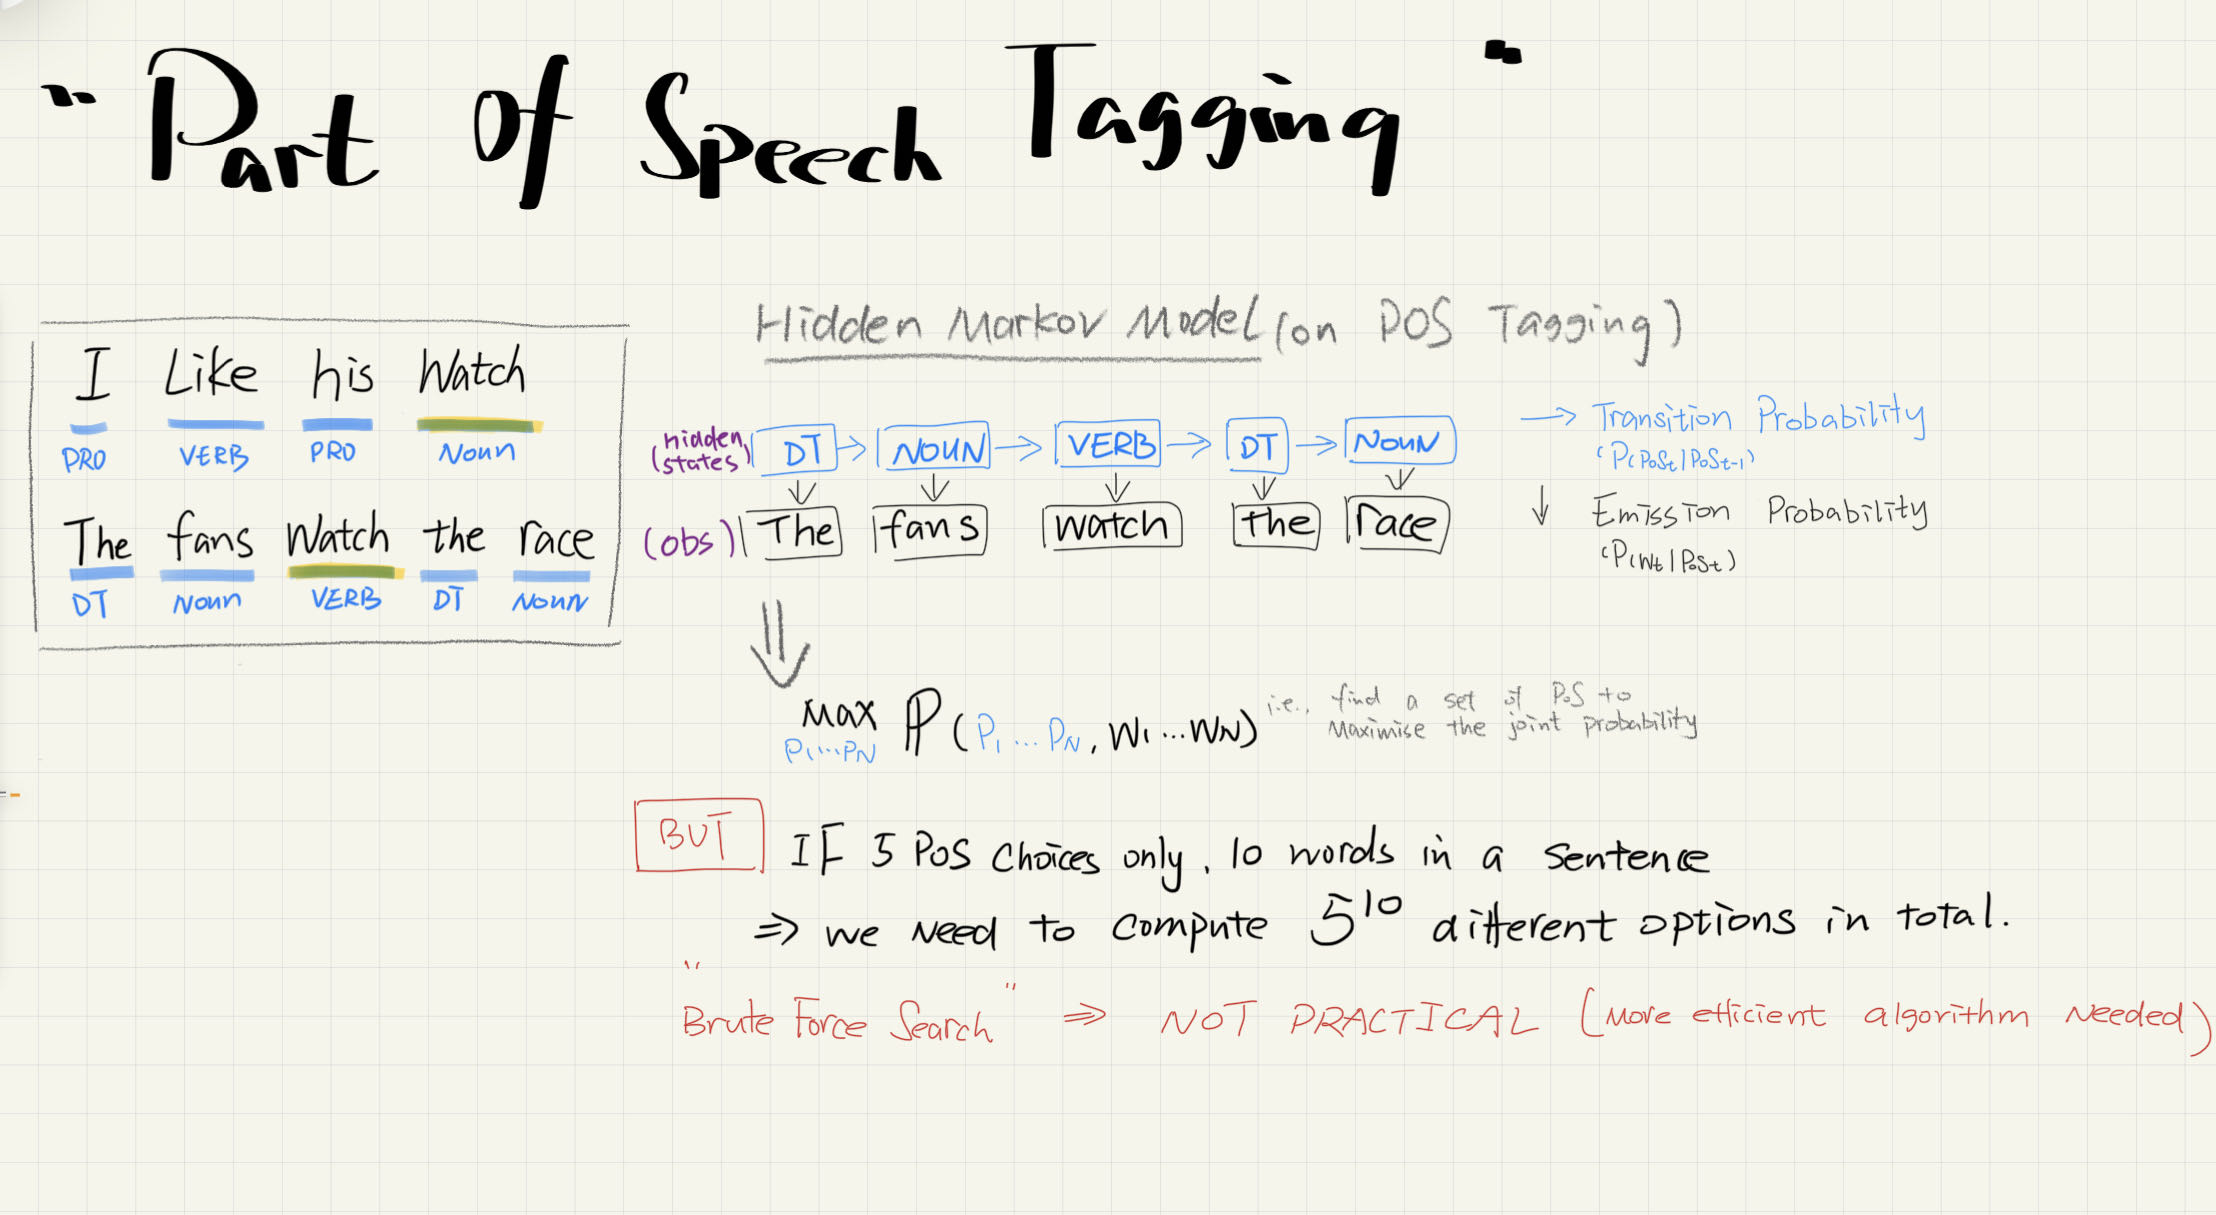 "Part Of Speech Tagging"
I Like his Watch
PRO VERB PRO Noun
The fans Watch the race
DT Noun VERB DT NOUN
Hidden Markov Model (on POS Tagging)
(hidden states) DT → NOUN → VERB → DT → NOUN
(obs) The fans watch the race
→ Transition Probability
(P(POSt|POSt-1)
↓ Emission Probability
(P(Wt|POSt)
max P(P1...PN, W1...WN)
P1...PN
i.e., find a set of POS to
Maximise the joint probability
BUT IF 5 POS Choices only, 10 words in a sentence
⇒ we need to compute 5^10 different options in total.
"Brute Force Search" ⇒ NOT PRACTICAL (More efficient algorithm needed)